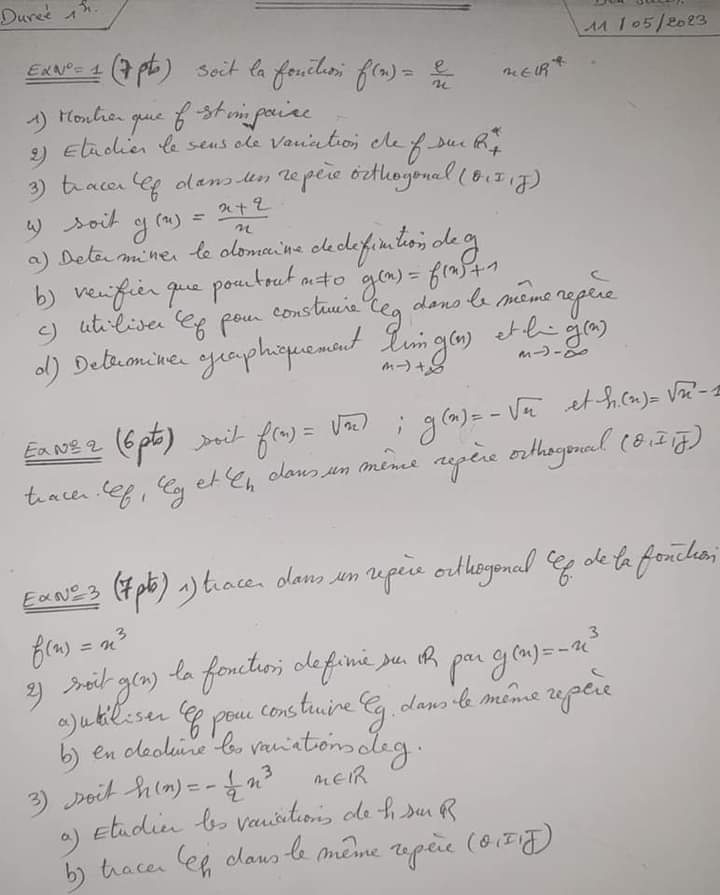 Dureé 1h.
11/05/2023
Ex N°=1 (7pts) soit la fonction f(x) = 2/x x∈ℝ*
1) Montrer que f est impaire
2) Etudier le sens de variation de f sur ℝ*+
3) tracer Cf dans un repère orthogonal (O,I,J)
4) soit g(x) = (x+2)/x
a) Determiner le domaine de definition de g
b) verifier que pour tout x≠0 g(x) = f(x)+1
c) utiliser Cf pour construire Cg dans le même repère
d) Determiner graphiquement lim g(x) x→+∞ et lim g(x) x→-∞
Ex N°=2 (6pts) soit f(x) = √x ; g(x) = -√x et h(x) = √x - 1
tracer Cf, Cg et Ch dans un même repère orthogonal (O,I,J)
Ex N°=3 (7pts) 1) tracer dans un repère orthogonal Cf de la fonction
f(x) = x³
2) soit g(x) la fonction definie sur ℝ par g(x) = -x³
a) utiliser Cf pour construire Cg dans le même repère
b) en deduire les variations de g.
3) soit h(x) = -1/2 x³ x∈ℝ
a) Etudier les variations de h sur ℝ
b) tracer Ch dans le même repère (O,I,J)